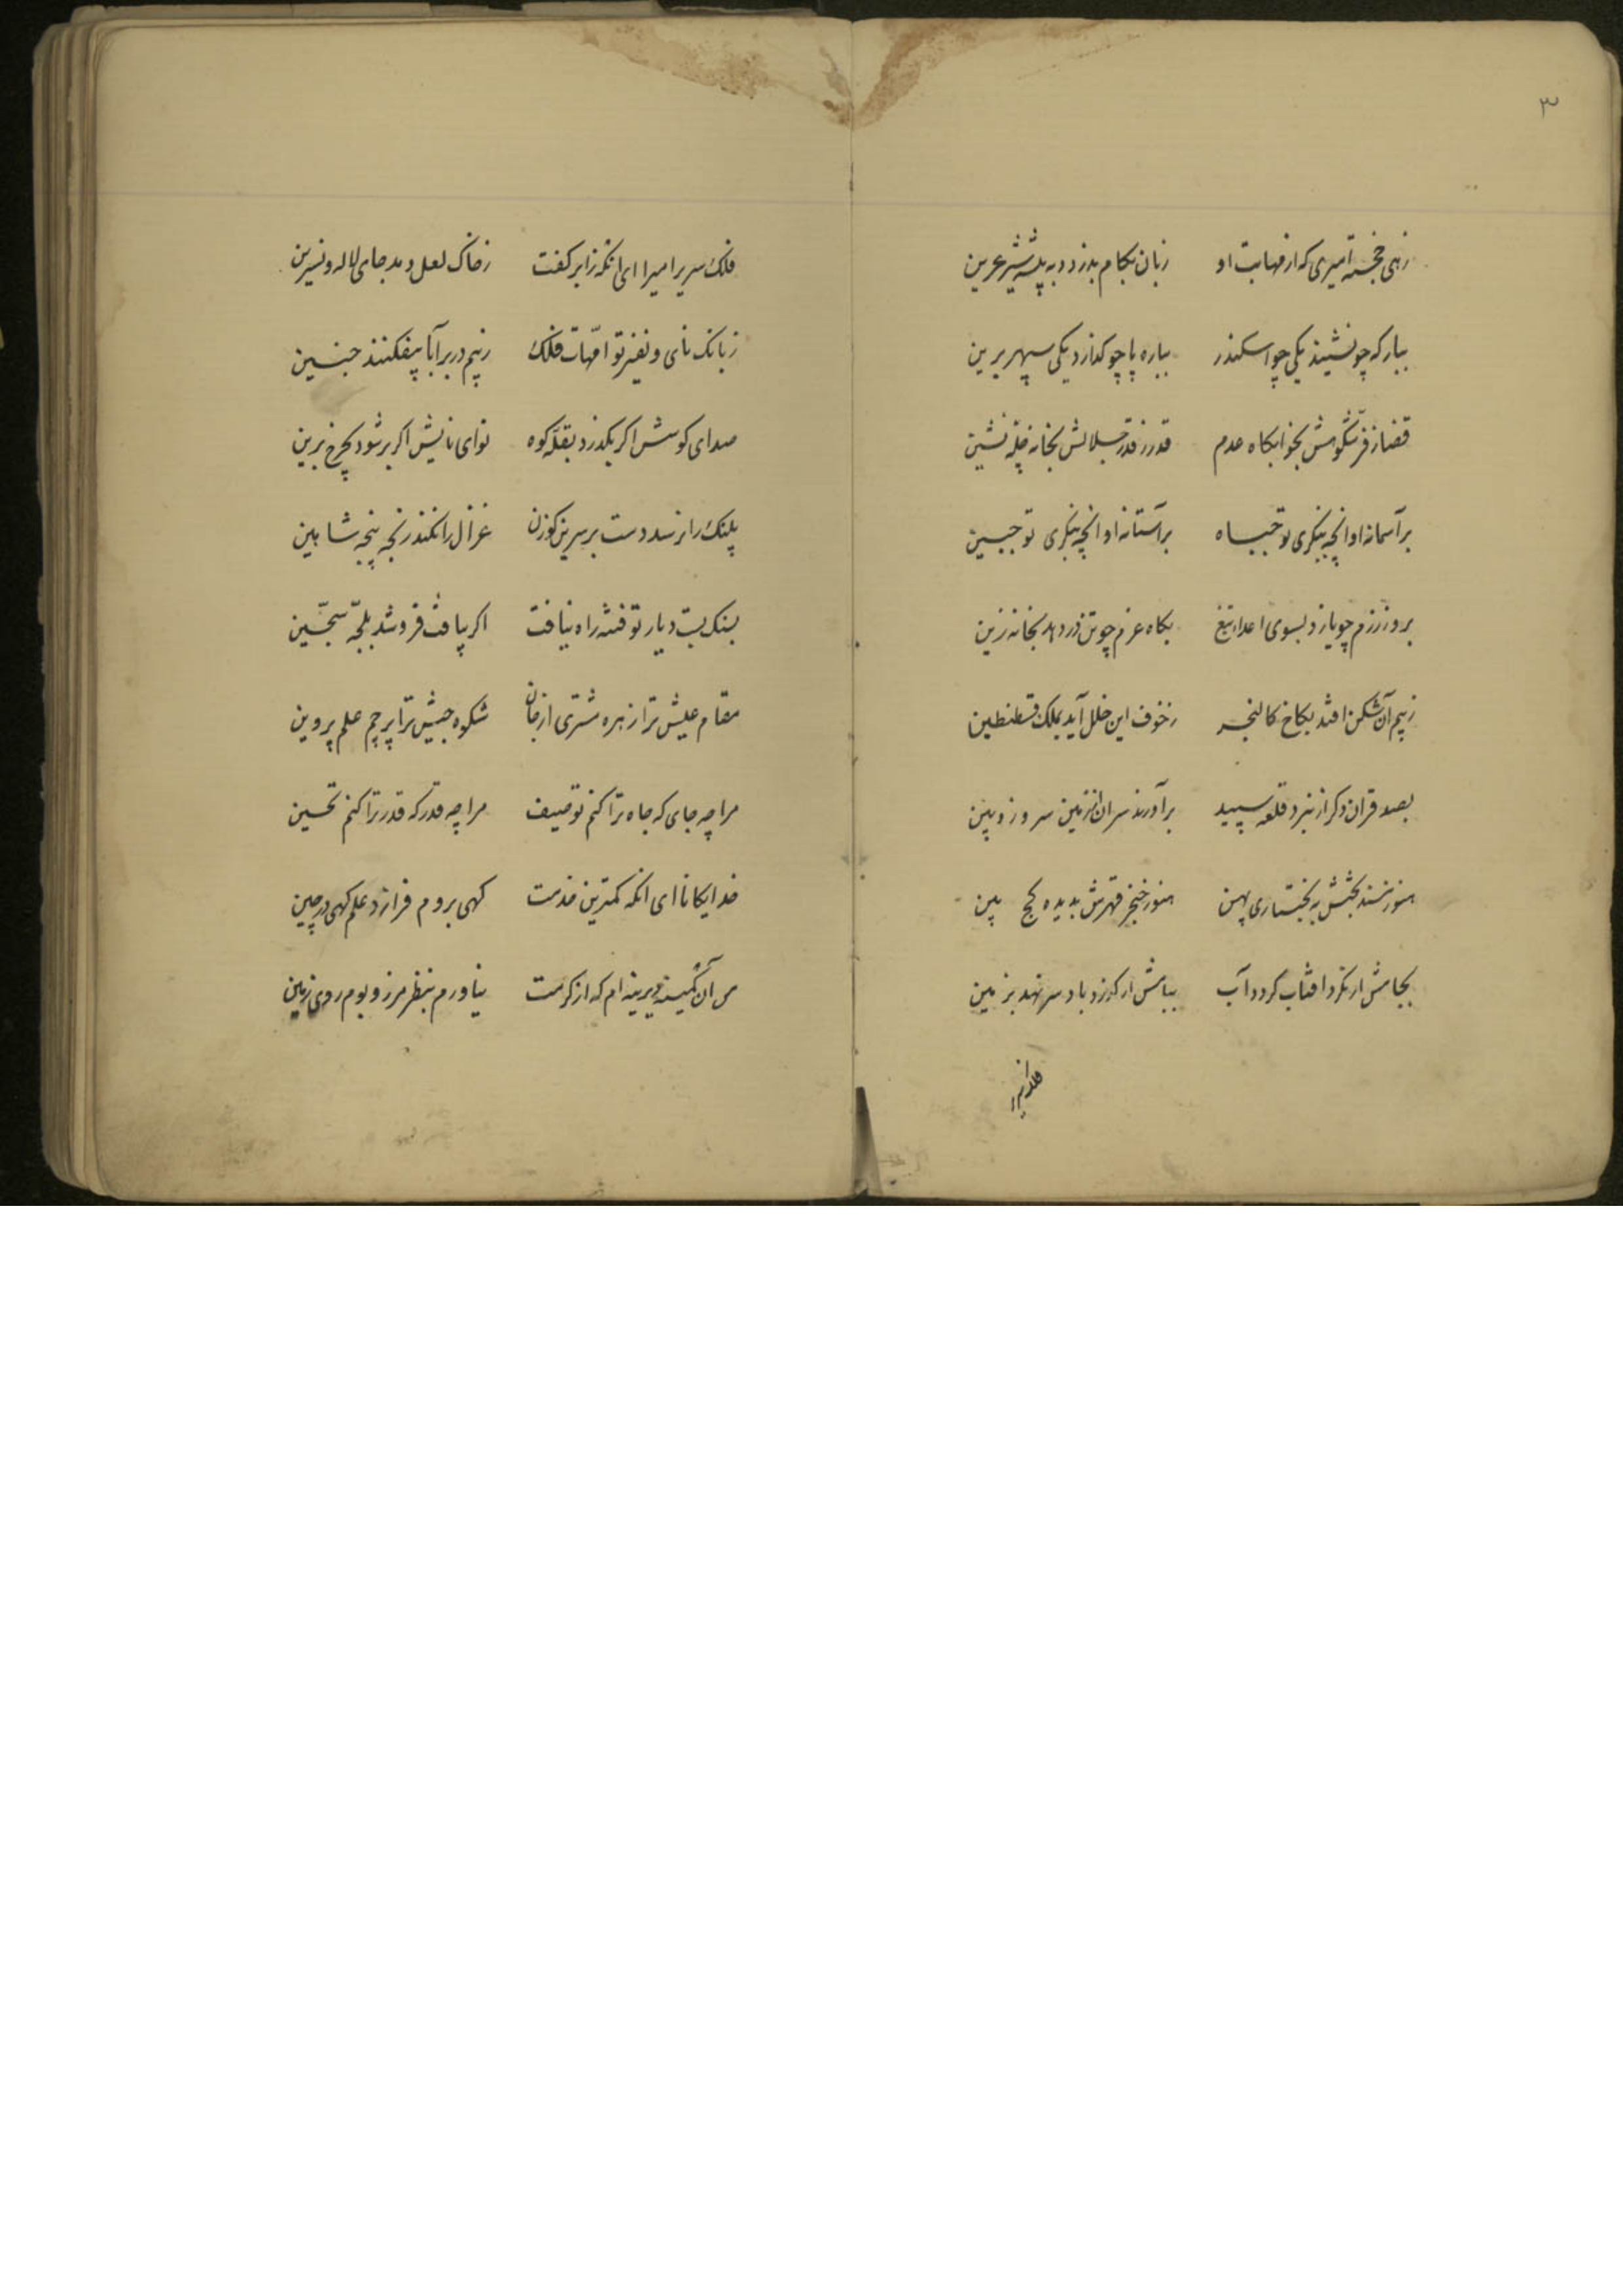 ۳
زهی خجسته امیری که از مهابت او زبان بکام بدزدد به بیشه شیر عرین
ببارکه چو نشیند یکی چو اسکندر بباره پا چو کذارد یکی سپهر برین
قضا ز فر شکوهش بخوابکاه عدم قدر ز قدر جلالش بخانه چله نشین
بر آسمانه او انچه بنکری تو جباه بر آستانه او انچه بنکری تو جبین
بروز رزم چو یازد بسوی اعدا تیغ بکاه عزم چو تن در دهد بخانه زین
ز بیم آن شکن افتد بکاخ کالنجر ز خوف این خلل آید بملک قسطنطین
بصد قران دکر از نبرد قلعه سپید برآورند سران از زمین سر و زوبین
هنوز بختش به بختیاری بهین هنوز خنجر قهرش بدیده کج بین
بجامش ار نکرد افتاب کردد آب ببامش ار کذرد باد سر نهد بزمین
فلک سریر امیرا ای انکه زابر کفت ز خاک لعل دمد جای لاله و نسرین
ز بانک نای و نفیر تو امّهات فلک ز بیم در بر آبا بیفکنند جنین
صدای کوسش اکر بکذرد بقلّه کوه نوای نایش اکر بر شود بچرخ برین
پلنک را نرسد دست بر سرین کوزن غزال را نکند رنجه پنجه شاهین
بسنک بست دیار تو فتنه راه نیافت اکر بیافت فرو شد بلجّه سجّین
مقام عیش ترا زهره مشتری ارزان شکوه جیش ترا پرچم علم پروین
مرا چه جای که جاه ترا کنم توصیف مرا چه قدر که قدر ترا کنم تحسین
خدایکانا ای انکه کمترین خدمت کهی بروم فرازد علم کهی در چین
من آن کمینه دیرینه ام که از کرمت نیاورم بنظر مرز و بوم روی زمین